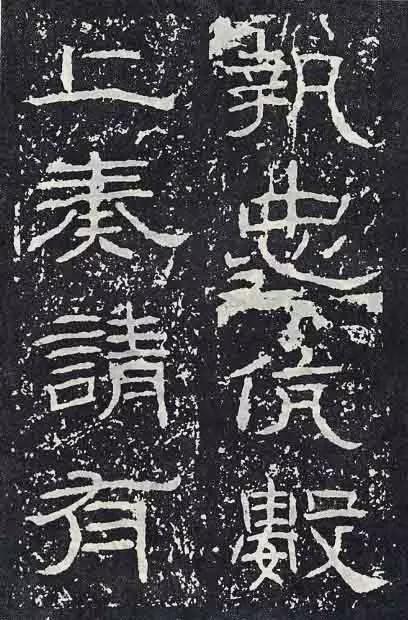 執忠伉數
上奏請有